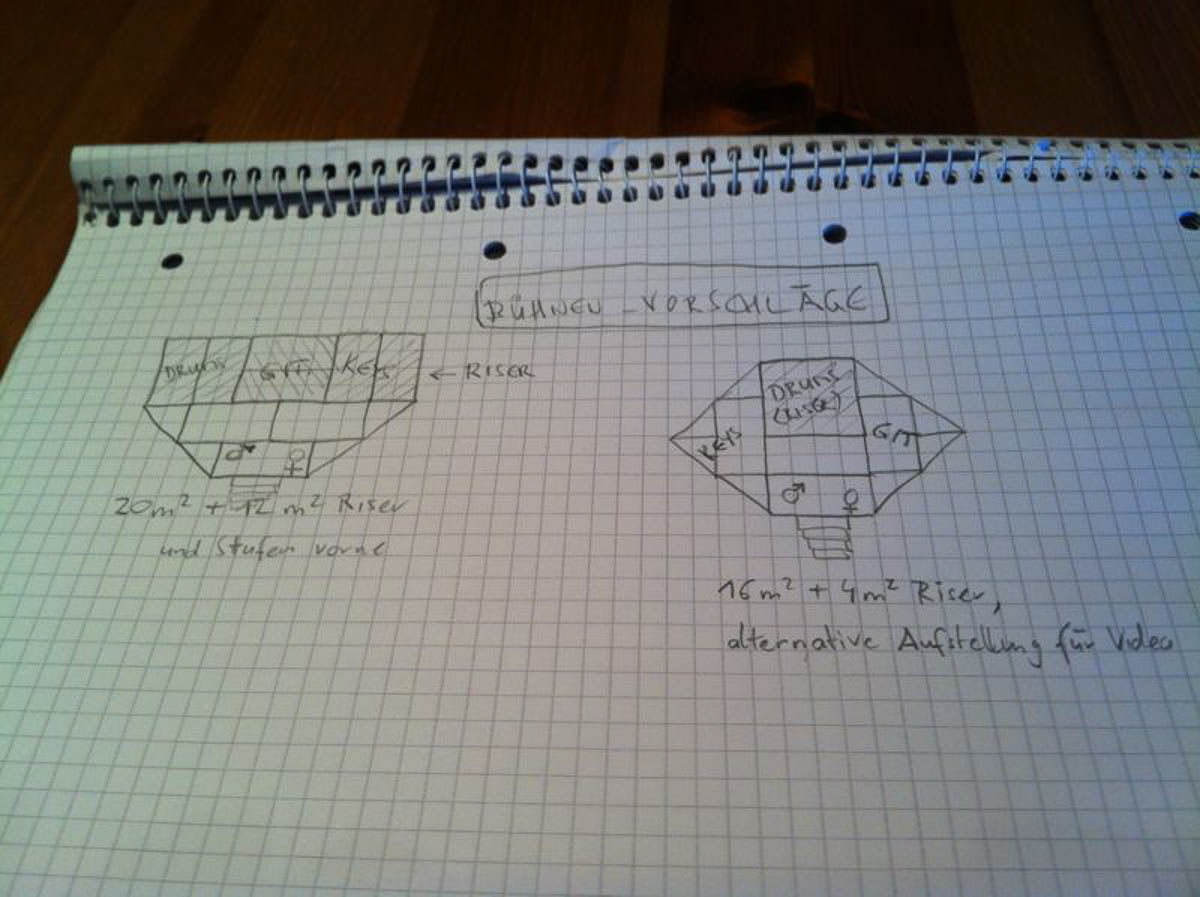 BÜHNEN-VORSCHLÄGE
DRUMS GIT KEYS ← RISER
♂ ♀
20m² + 12 m² Riser
und Stufen vorne
DRUMS
(RISER)
KEYS GIT
♂ ♀
16m² + 4m² Riser,
alternative Aufstellung für Video